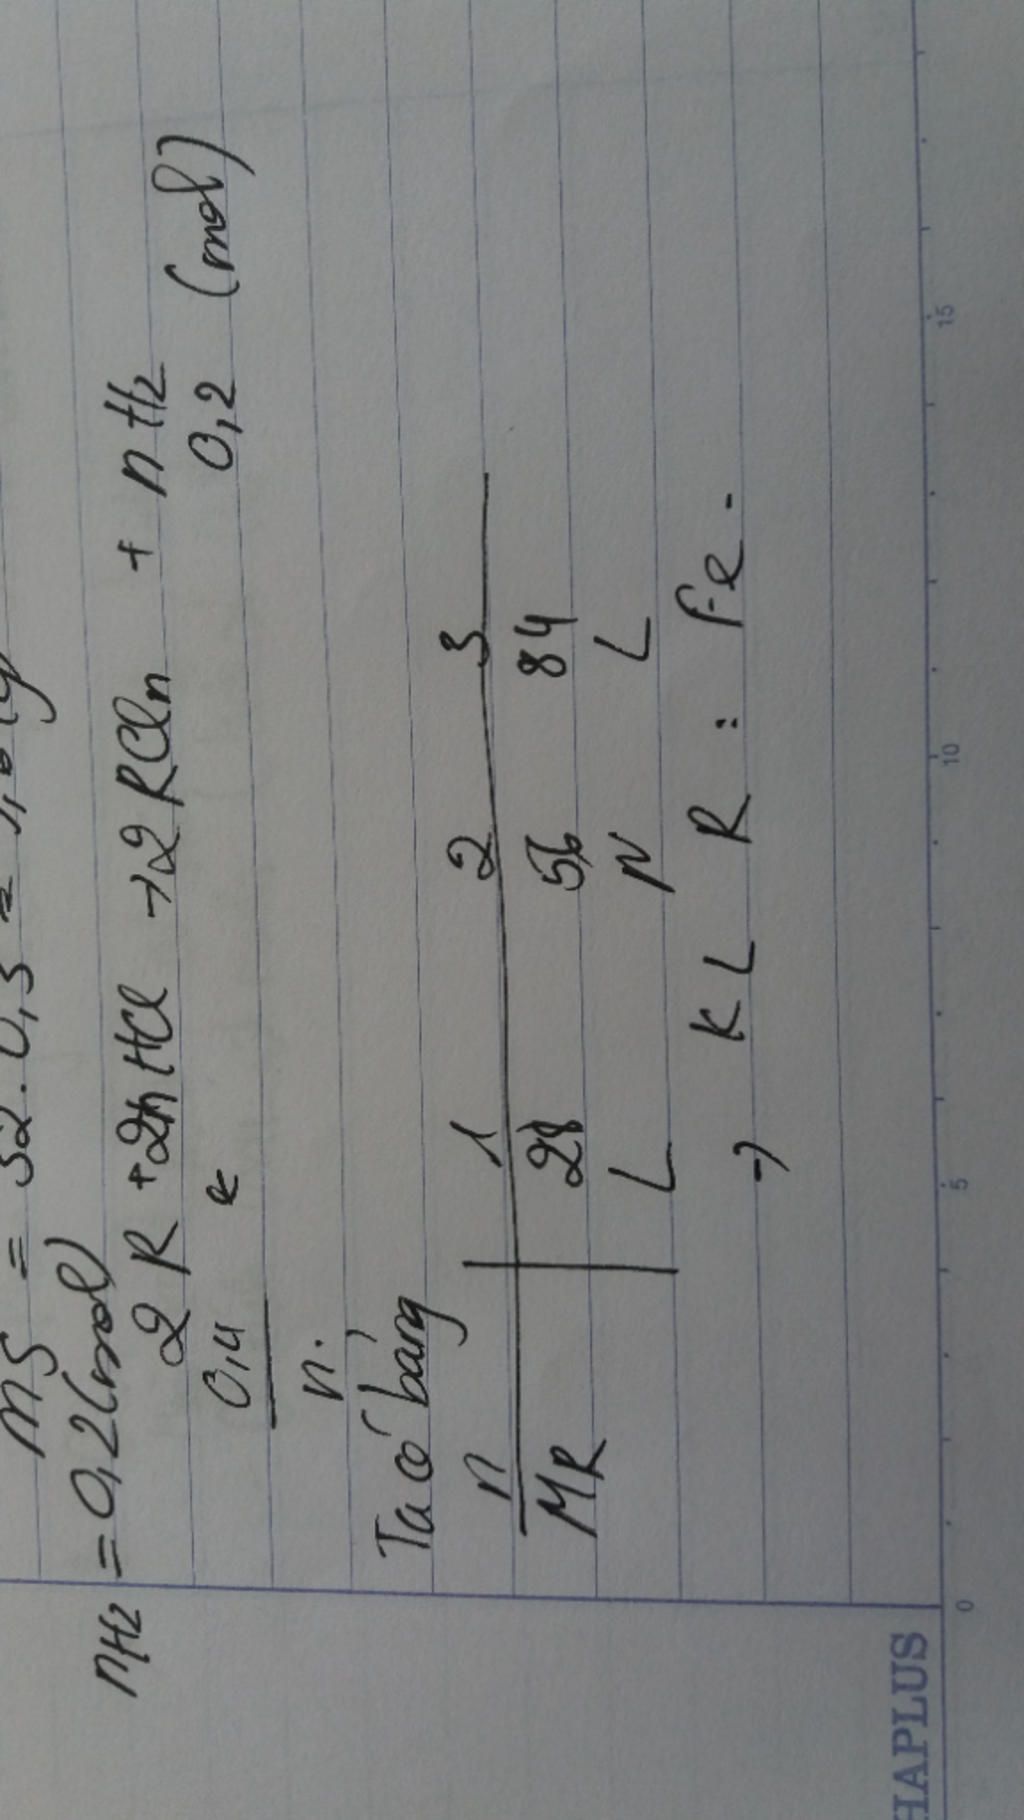 mS = 32.0,3 =
nH2 = 0,2 (mol)
2R + 2nHCl → 2RCln + nH2
0,4 ← 0,2 (mol)
n
Ta có bảng
n 1 2 3
MR 28 56 84
L N L
→ KL R : Fe.
0 5 10 15
HAPLUS